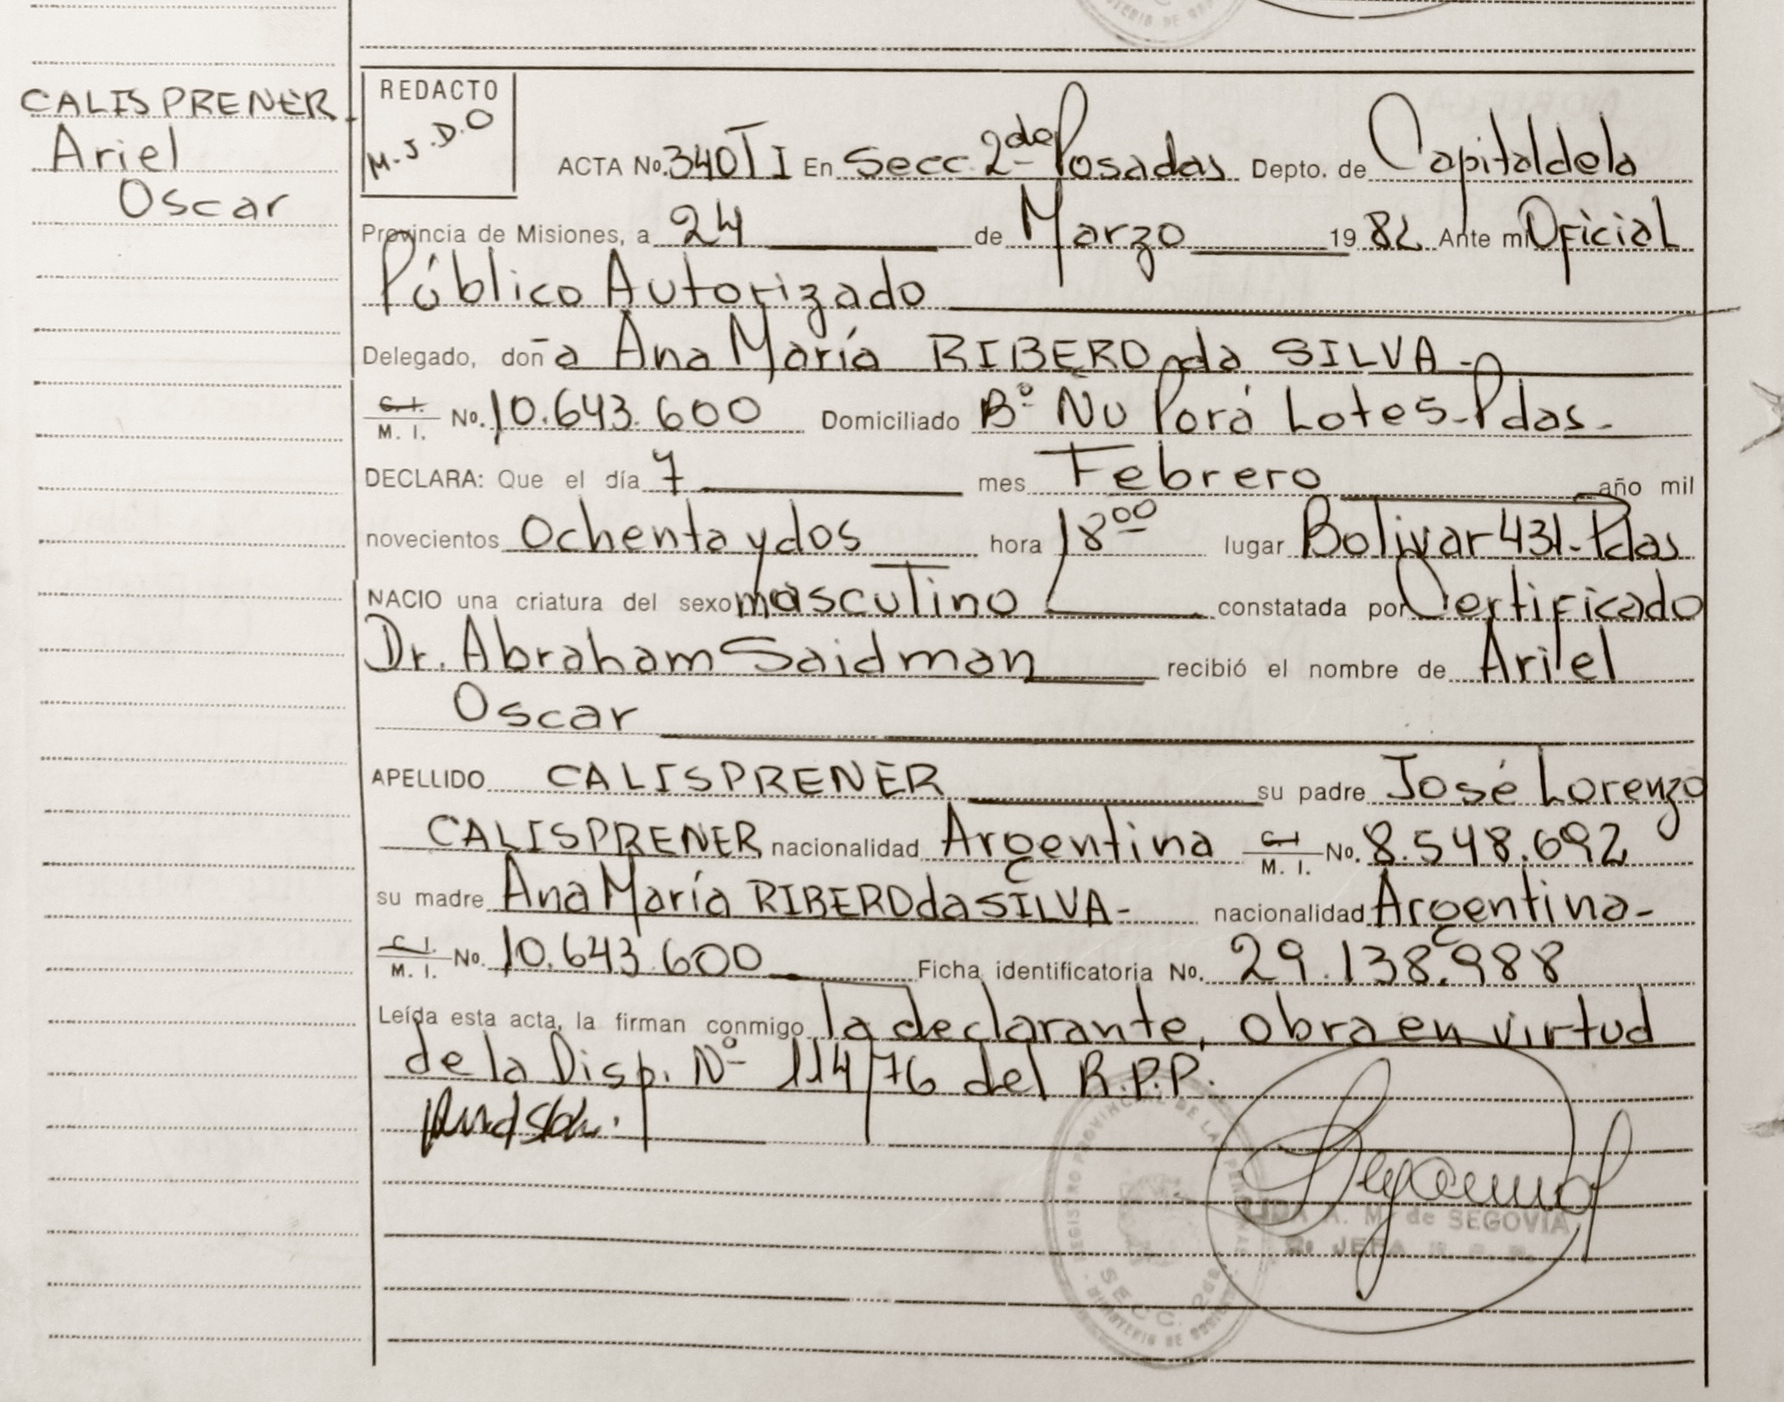 CALISPRENER
Ariel
Oscar
REDACTO
M.J.D.O
ACTA No. 340 TI En Secc. 2da de Posadas Depto. de Capital de la
Provincia de Misiones, a 24 de Marzo 1982 Ante mi Oficial
Público Autorizado
Delegado, don a Ana María RIBERO da SILVA -
C. I. / M. I. No. 10.643.600 Domiciliado Bº Ñu Porá Lote 5 - Pdas -
DECLARA: Que el día 7 mes Febrero año mil
novecientos Ochenta y dos hora 18 00 lugar Bolivar 431 - Pdas
NACIO una criatura del sexo masculino constatada por Certificado
Dr. Abraham Saidman recibió el nombre de Ariel
Oscar
APELLIDO CALISPRENER su padre José Lorenzo
CALISPRENER nacionalidad Argentina C.I. / M. I. No. 8.548.692
su madre Ana María RIBERO da SILVA - nacionalidad Argentina -
C. I. / M. I. No. 10.643.600 Ficha identificatoria No. 29.138.988
Leída esta acta, la firman conmigo la declarante, obra en virtud
de la Disp. Nº 114/76 del R.P.P.
REGISTRO PROVINCIAL DE LAS PERSONAS
SECC. 2da
MINISTERIO DE GOBIERNO
A. M. de SEGOVIA
JEFA R. P. P.